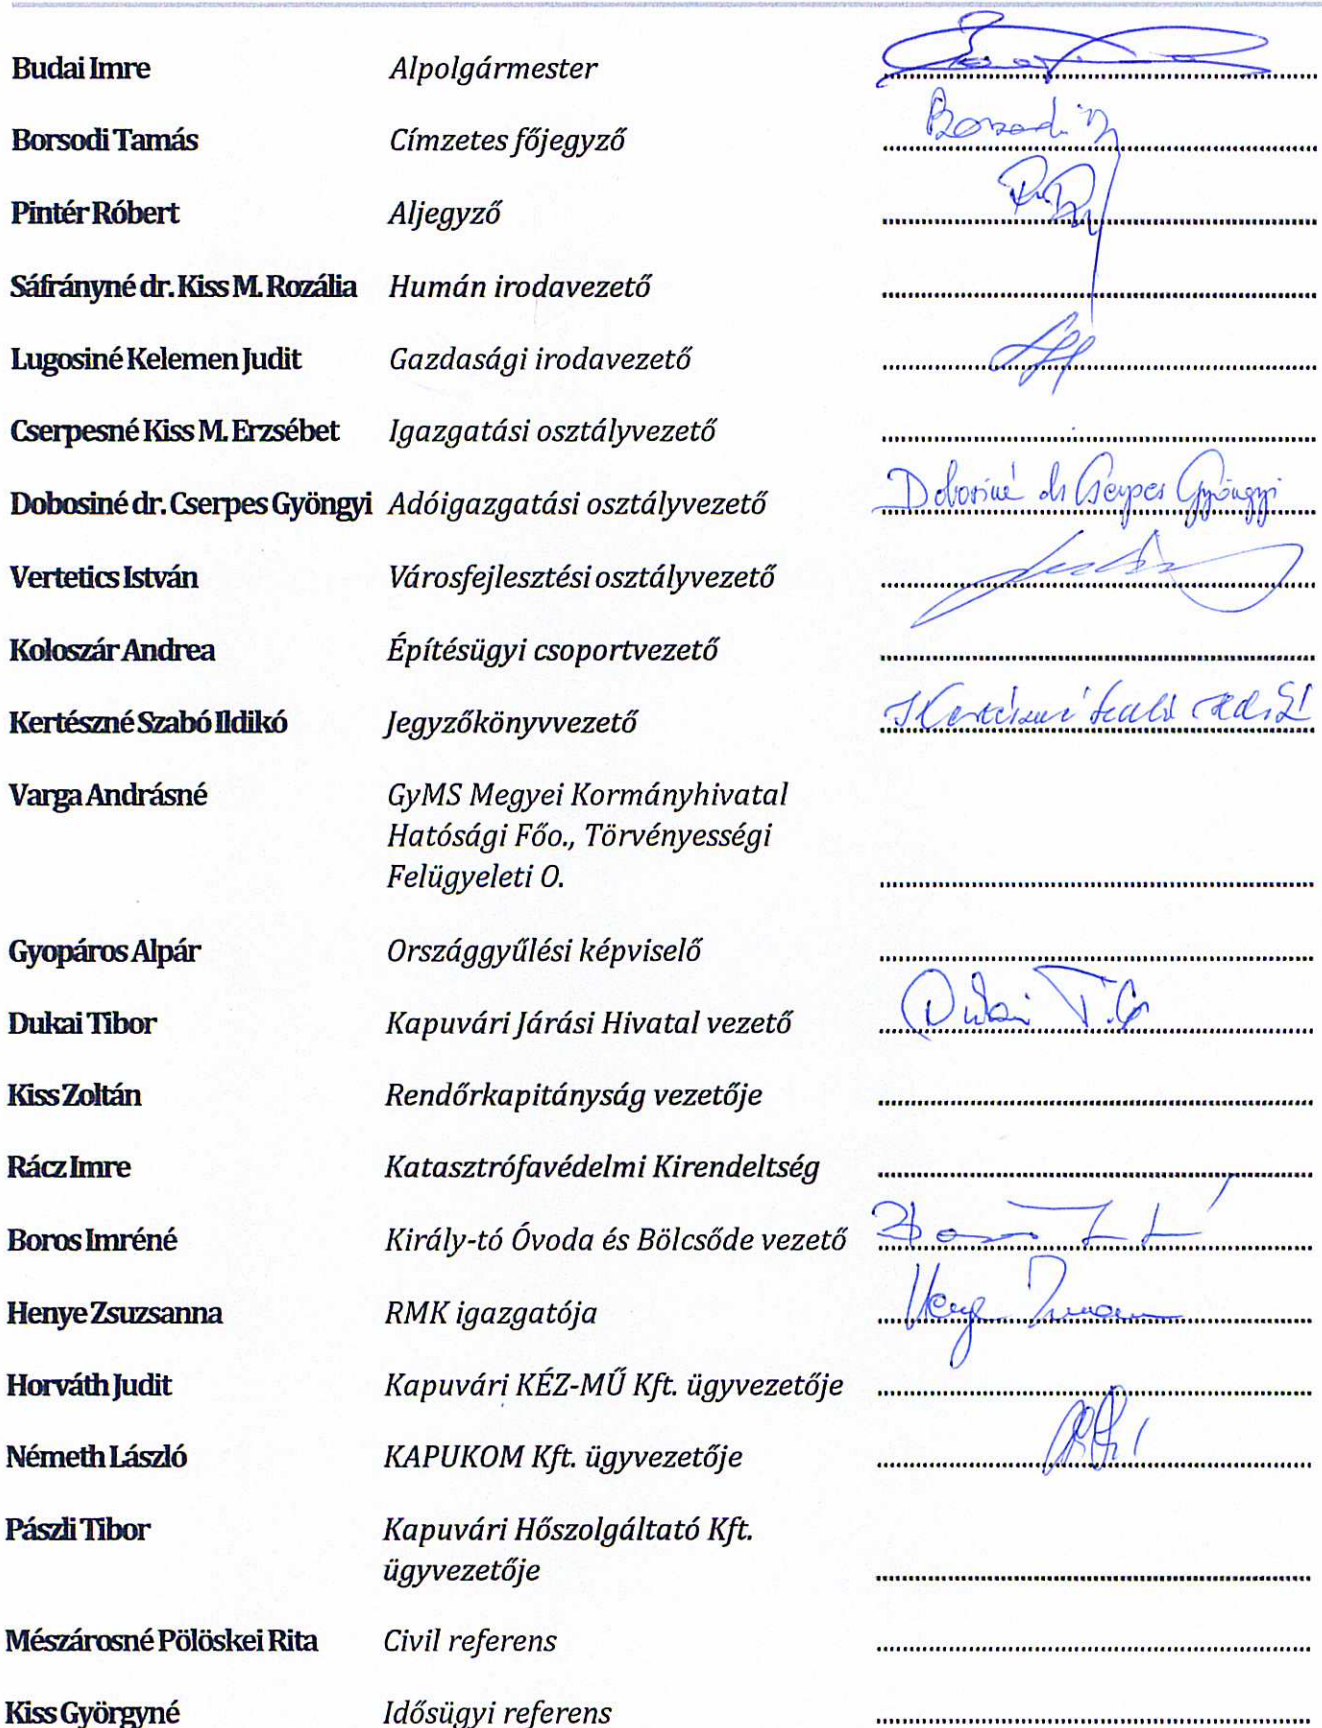 Budai Imre Alpolgármester
Borsodi Tamás Címzetes főjegyző Borsodi
Pintér Róbert Aljegyző
Sáfrányné dr. Kiss M. Rozália Humán irodavezető
Lugosiné Kelemen Judit Gazdasági irodavezető
Cserpesné Kiss M. Erzsébet Igazgatási osztályvezető
Dobosiné dr. Cserpes Gyöngyi Adóigazgatási osztályvezető Dobosiné dr Cserpes Gyöngyi
Vertetics István Városfejlesztési osztályvezető
Koloszár Andrea Építésügyi csoportvezető
Kertészné Szabó Ildikó Jegyzőkönyvvezető Kertészné Szabó Ildikó
Varga Andrásné GyMS Megyei Kormányhivatal
Hatósági Főo., Törvényességi
Felügyeleti O.
Gyopáros Alpár Országgyűlési képviselő
Dukai Tibor Kapuvári Járási Hivatal vezető Dukai Tibor
Kiss Zoltán Rendőrkapitányság vezetője
Rácz Imre Katasztrófavédelmi Kirendeltség
Boros Imréné Király-tó Óvoda és Bölcsőde vezető
Henye Zsuzsanna RMK igazgatója
Horváth Judit Kapuvári KÉZ-MŰ Kft. ügyvezetője
Németh László KAPUKOM Kft. ügyvezetője
Pászli Tibor Kapuvári Hőszolgáltató Kft.
ügyvezetője
Mészárosné Pölöskei Rita Civil referens
Kiss Györgyné Idősügyi referens